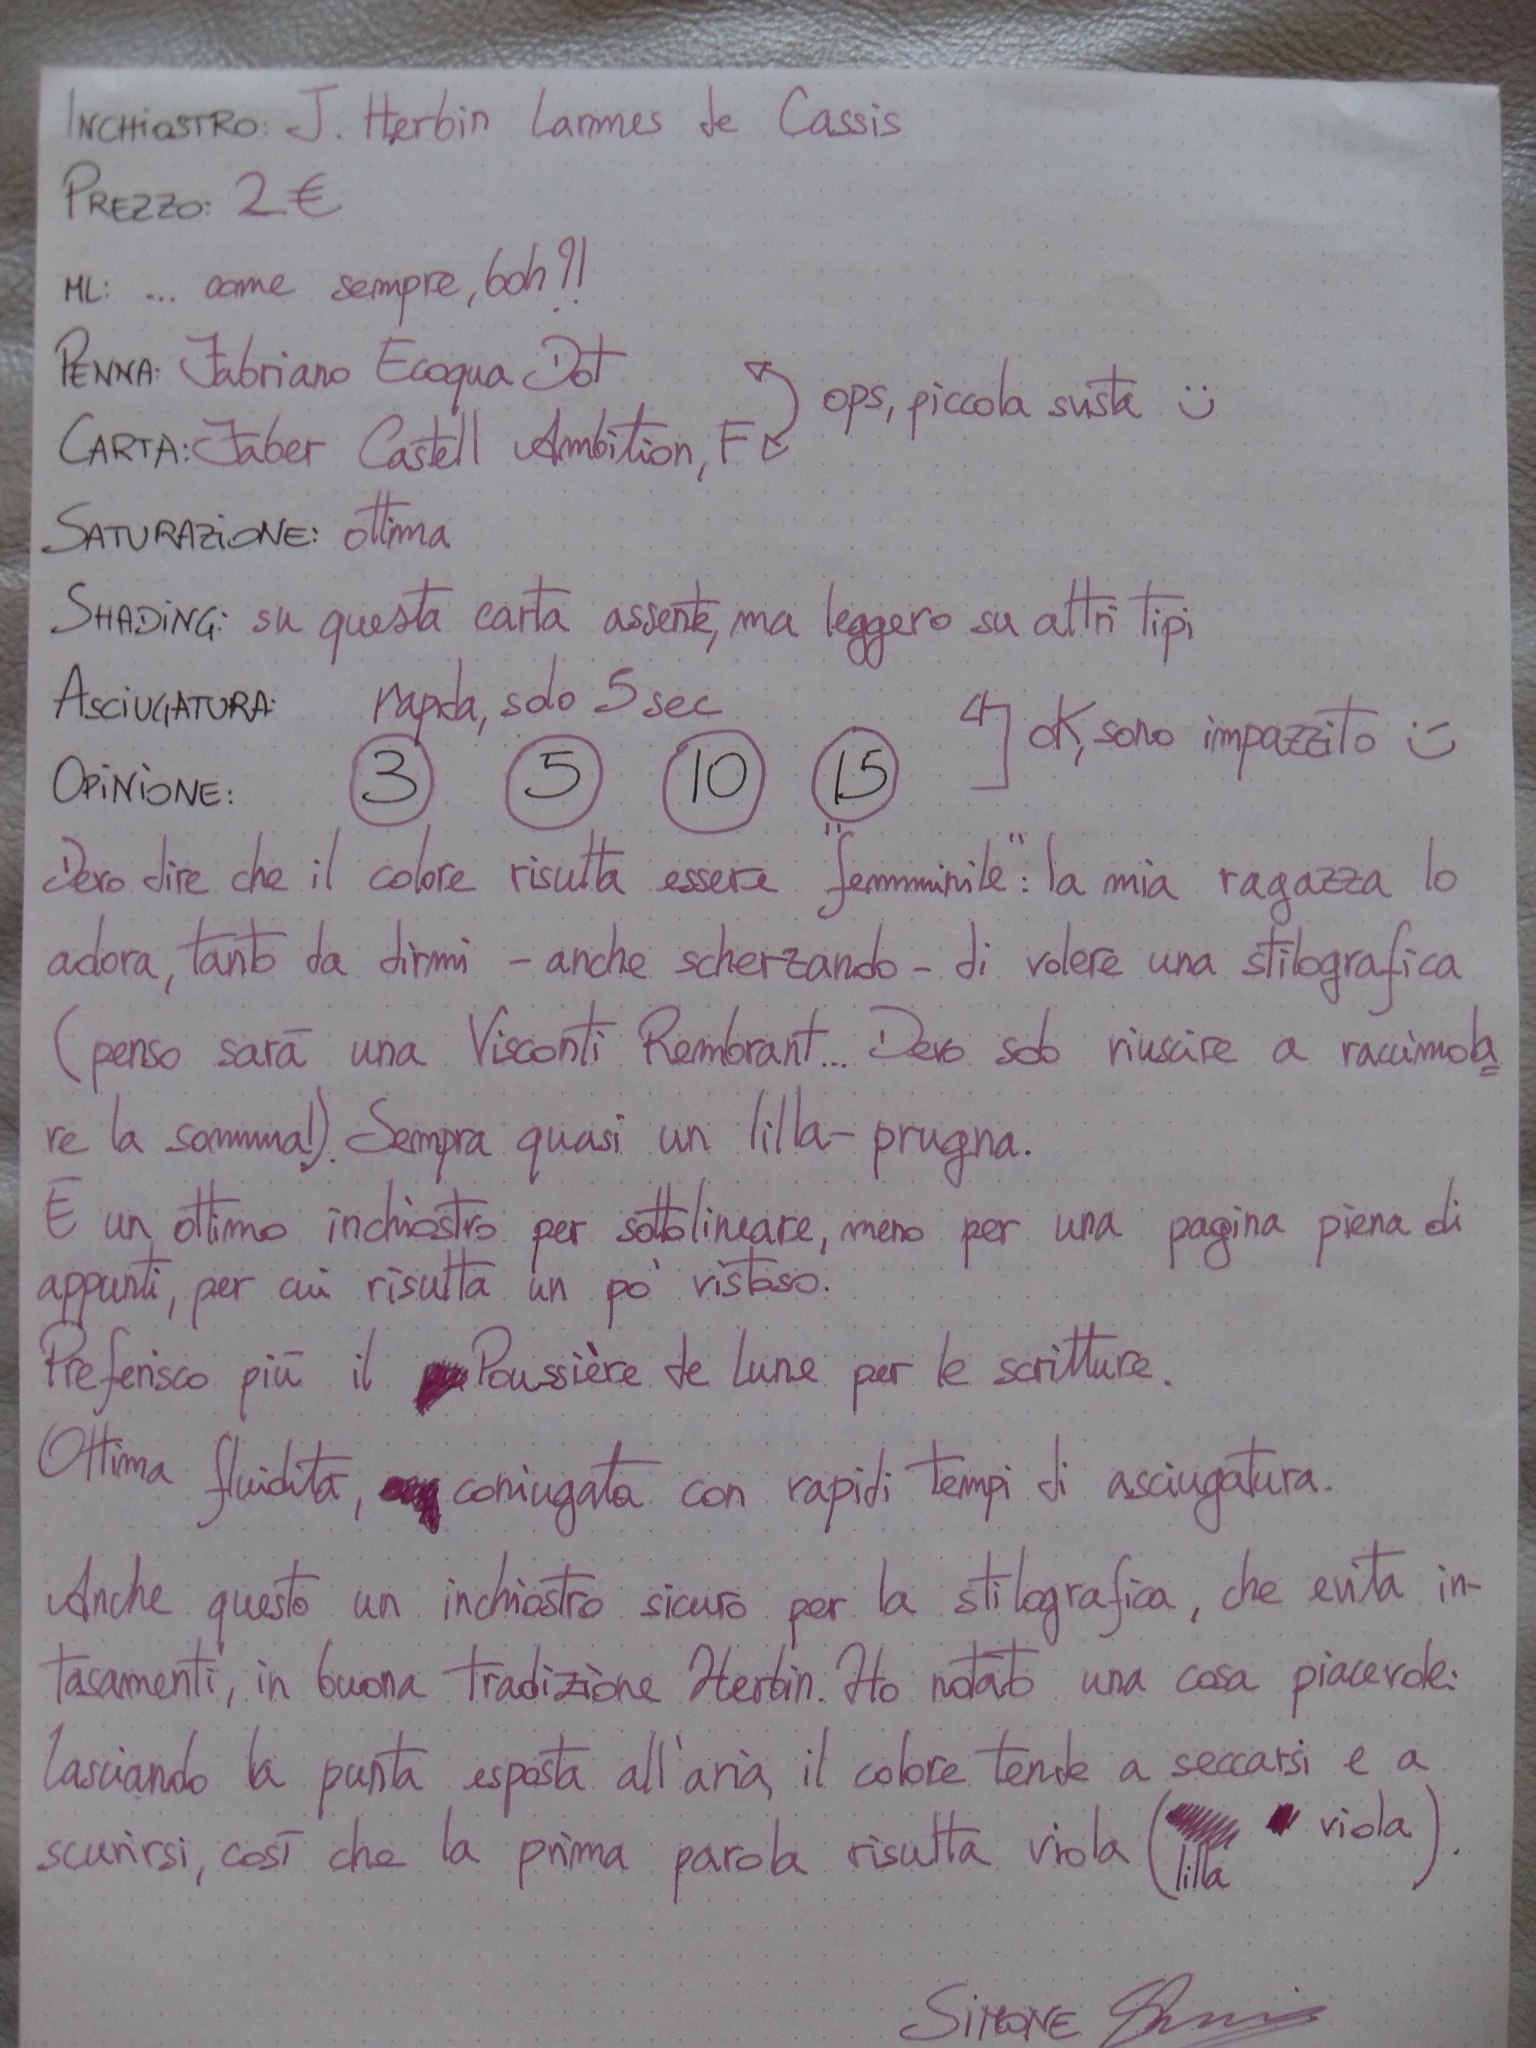 INCHiOSTRO: J. Herbin Larmes de Cassis
PREZZO: 2€
ML: ... come sempre, boh?!
PENNA: Fabriano Ecoqua Dot
ops, piccola svista :)
CARTA: Faber Castell Ambition, F
SATURAZiONE: ottima
SHADiNG: su questa carta assente, ma leggero su altri tipi
ASCiUGATURA: rapida, solo 5 sec
OK, sono impazzito :)
OPiNiONE: 3 5 10 15
Devo dire che il colore risulta essere "femmminile": la mia ragazza lo
adora, tanto da dirmi - anche scherzando - di volere una stilografica
(penso sarà una Visconti Rembrant... Devo solo riuscire a raccimola=
re la somma!). Sempra quasi un lilla-prugna.
È un ottimo inchiostro per sottolineare, meno per una pagina piena di
appunti, per cui risulta un po' vistoso.
Preferisco più il Poussière de Lune per le scritture.
Ottima fluidità, coniugata con rapidi tempi di asciugatura.
Anche questo un inchiostro sicuro per la stilografica, che evita in-
tasamenti, in buona tradizione Herbin. Ho notato una cosa piacevole:
lasciando la punta esposta all'aria, il colore tende a seccarsi e a
scurirsi, così che la prima parola risulta viola (lilla viola).
SiMONE